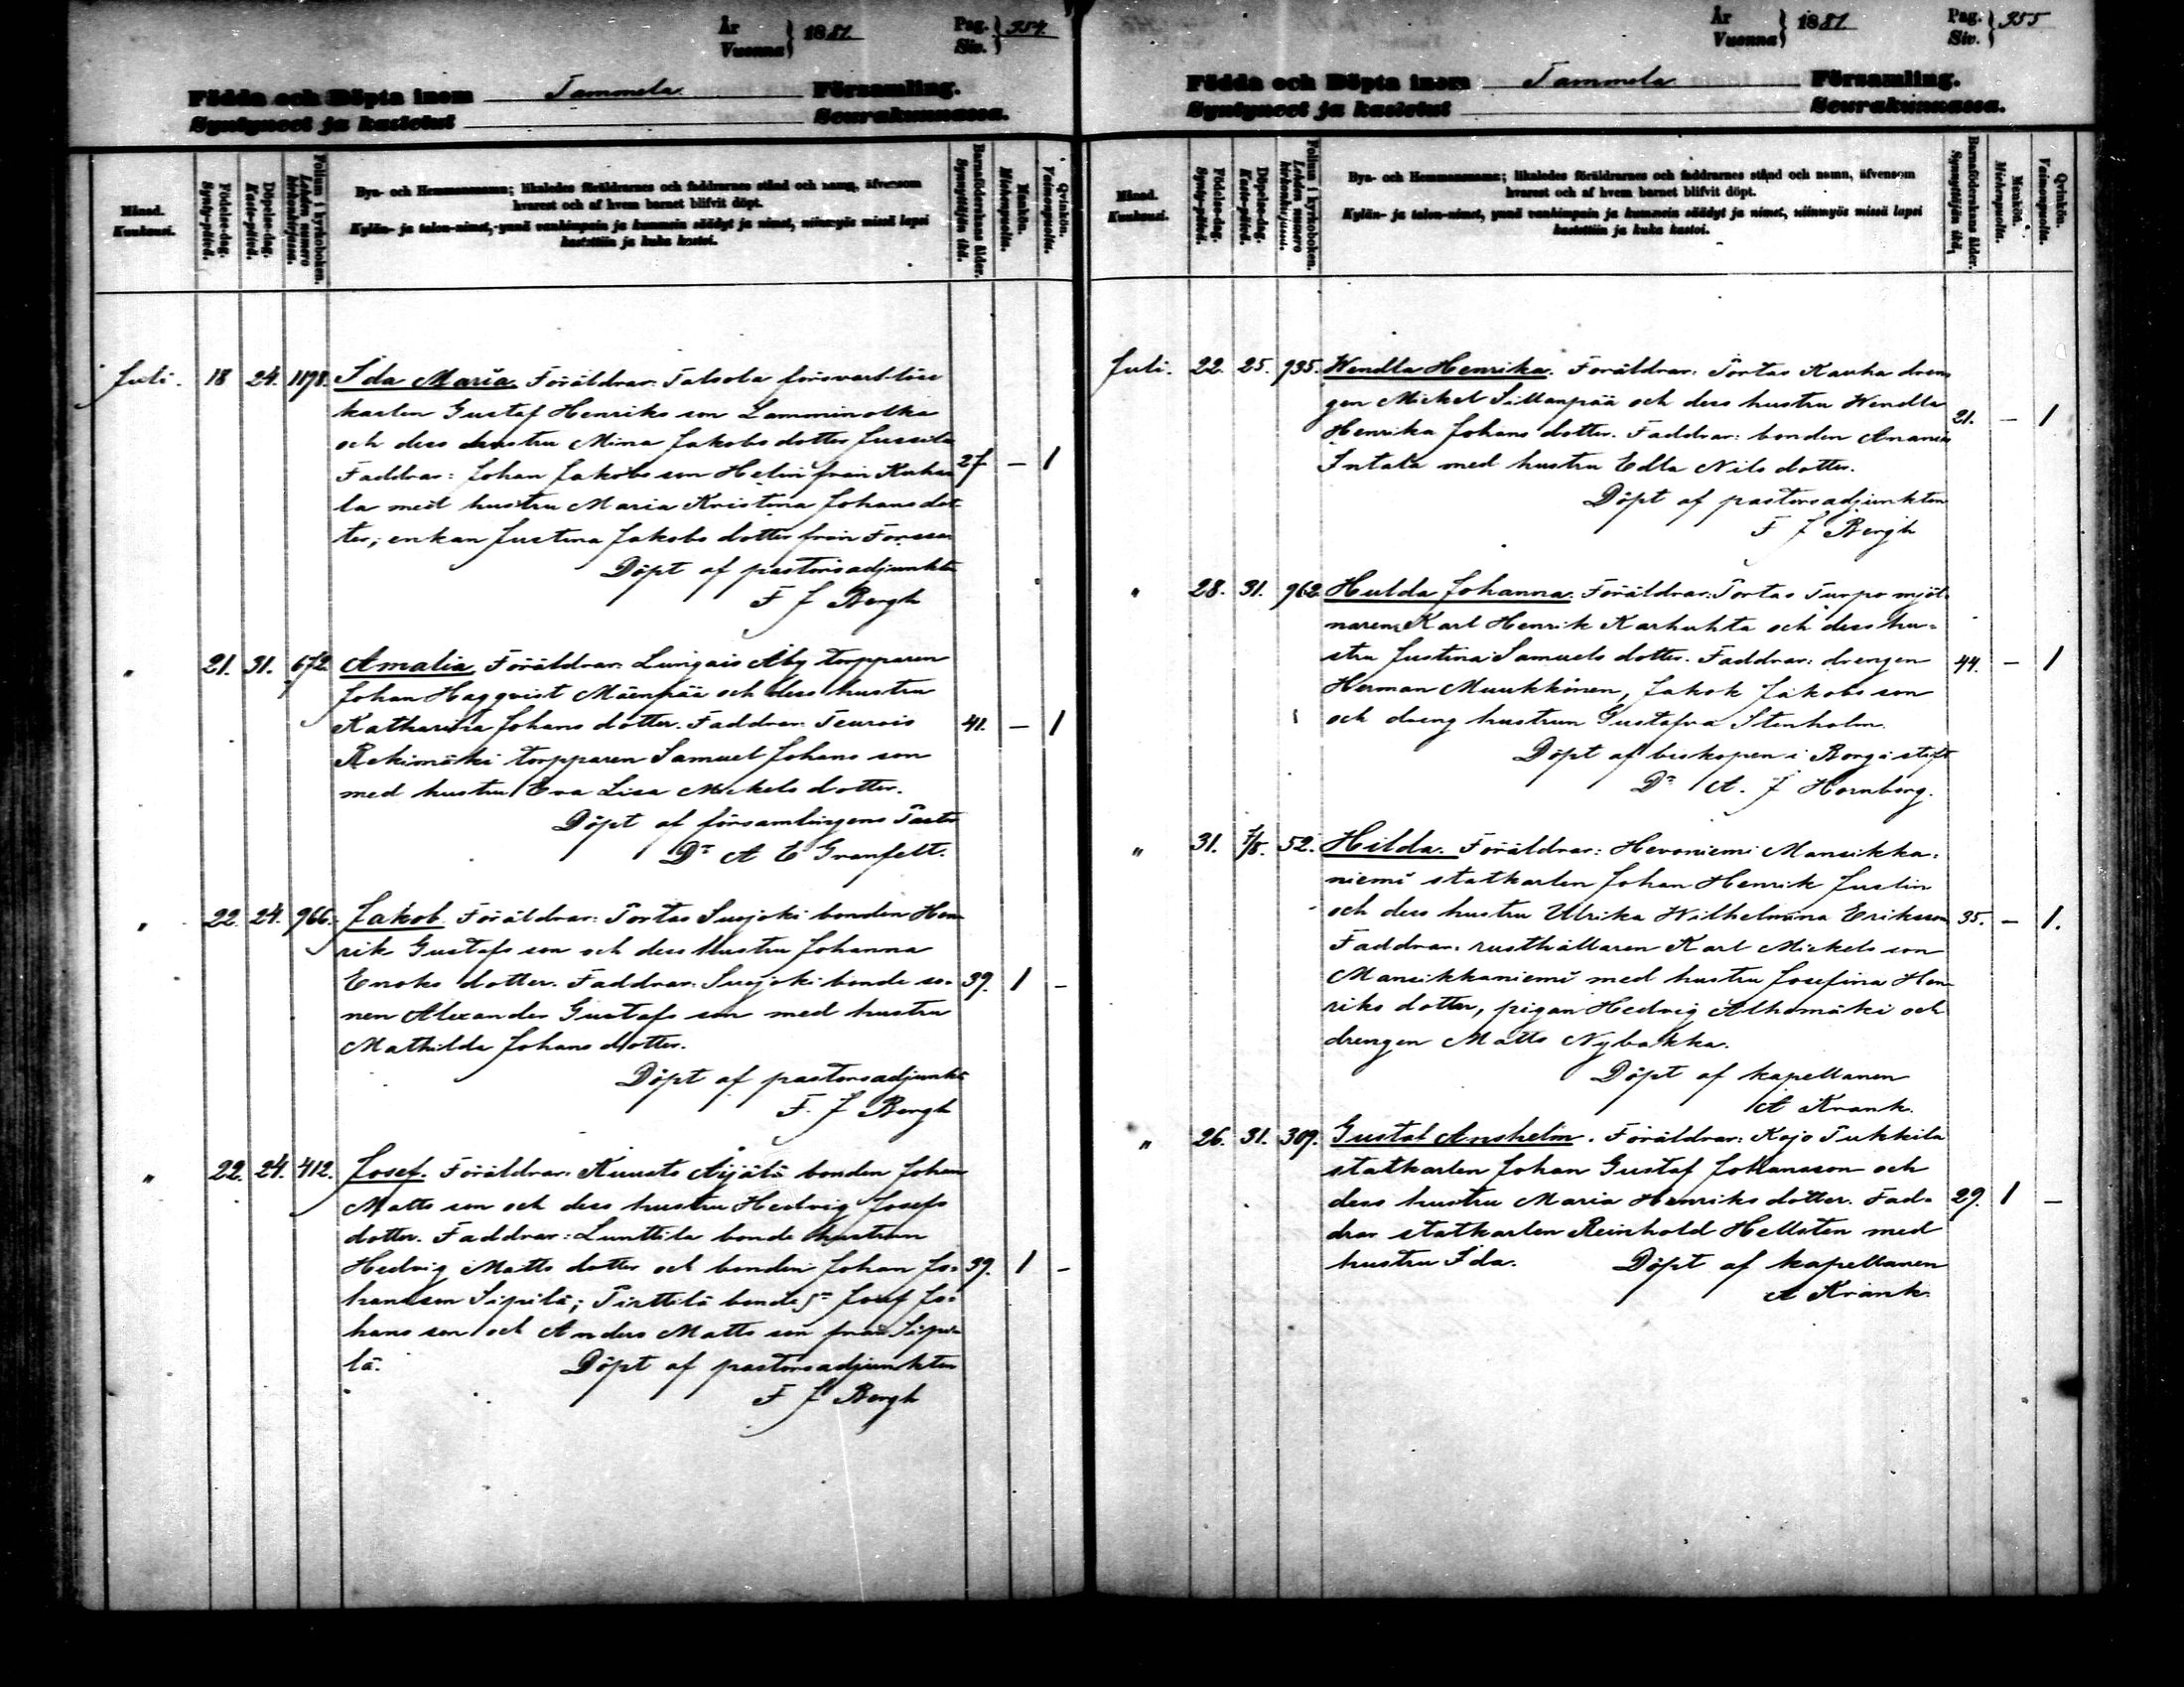 År
Vuonna } 1881.
Pag.
Siv. } 954.
Födda och Döpta inom Tammela Församling.
Syntyneet ja kastetut Seurakunnassa.
Månad.
Kuukausi.
Födelse-dag.
Synty-päivä.
Döpelse-dag.
Kaste-päivä.
Folium i kyrkoboken.
Lehden numero kirkonkirjassa.
Bya- och Hemmansnamn; likaledes föräldrarnes och faddrarnes stånd och namn, äfvensom
hvarest och af hvem barnet blifvit döpt.
Kylän- ja talon-nimet, ynnä vanhimpain ja kummein säädyt ja nimet, niinmyös missä lapsi
kastettiin ja kuka kastoi.
Barnaföderskans ålder.
Synnyttäjän ikä.
Mankön.
Miehenpuolia.
Qvinkön.
Vaimonpuolia.
Juli. 18 24. 1178. Ida Maria. Föräldrar: Talsola försvarslöse
karlen Gustaf Henriks son Lamminolka
och dess hustru Mina Jakobs dotter Jussila
Faddrar: Johan Jakobs son Helin från Kuha 27 — 1
la med hustru Maria Kristina Johans dot
ter; enkan Justina Jakobs dotter från Forssa
Döpt af pastorsadjunkten
F J Bergh
" 21. 31. 672. Amalia. Föräldrar: Lungais Åby torpparen
Johan Hagqvist Mäenpää och dess hustru
Katharina Johans dotter. Faddrar: Teurois 41. — 1
Rekimäki torpparen Samuel Johans son
med hustru Eva Lisa Mickels dotter.
Döpt af församlingens Pastor
Dr A E Granfelt.
" 22. 24. 966. Jakob. Föräldrar: Portas Suojoki bonden Hen
rik Gustafs son och dess hustru Johanna
Enoks dotter. Faddrar: Suojoki bonde so- 39. 1 –
nen Alexander Gustafs son med hustru
Mathilda Johans dotter.
Döpt af pastorsadjunkt
F. J Bergh
" 22. 24. 412. Josef. Föräldrar: Kuusto Äijälä bonden Johan
Matts son och dess hustru Hedvig Josefs
dotter. Faddrar: Lunttila bonde hustrun
Hedvig Matts dotter och bonden Johan Jo- 39. 1 –
hansson Sipilä; Pirttilä bondes Josef Jo-
hans son och Anders Matts son från Sipi-
lä. Döpt af pastorsadjunkten
F J Bergh
År
Vuonna } 1881
Pag.
Siv. } 955
Födda och Döpta inom Tammela Församling.
Syntyneet ja kastetut Seurakunnassa.
Månad.
Kuukausi.
Födelse-dag.
Synty-päivä.
Döpelse-dag.
Kaste-päivä.
Folium i kyrkoboken.
Lehden numero kirkonkirjassa.
Bya- och Hemmansnamn; likaledes föräldrarnes och faddrarnes stånd och namn, äfvensom
hvarest och af hvem barnet blifvit döpt.
Kylän- ja talon-nimet, ynnä vanhimpain ja kummein säädyt ja nimet, niinmyös missä lapsi
kastettiin ja kuka kastoi.
Barnaföderskans ålder.
Synnyttäjän ikä.
Mankön.
Miehenpuolia.
Qvinkön.
Vaimonpuolia.
Juli. 22. 25. 935. Wendla Henrika. Föräldrar: Portas Kauha dren
gen Mickel Sillanpää och dess hustru Wendla
Henrika Johans dotter. Faddrar: bonden Ananias 21. — 1
Intala med hustru Edla Nils dotter.
Döpt af pastorsadjunkten
F J Bergh
" 28. 31. 962 Hulda Johanna. Föräldrar: Portas Turpo mjöl-
naren Karl Henrik Karhuhta och dess hu-
stru Justina Samuels dotter. Faddrar: drengen 44. — 1
Herman Muukkönen, Jakob Jakobs son
och dreng hustrun Gustafva Stenholm.
Döpt af biskopen i Borgå stift
Dr A. J Hornborg.
" 31. 7/8. 52. Hilda. Föräldrar: Hevoniemi Mansikka-
niemi statkarlen Johan Henrik Juslin
och dess hustru Ulrika Wilhelmina Eriksson 35. — 1.
Faddrar: rusthållaren Karl Mickels son
Mansikkaniemi med hustru Josefina Hen-
riks dotter, pigan Hedvig Alhomäki och
drengen Matts Nybakka.
Döpt af kapellanen
A Krank.
" 26. 31. 309. Gustaf Anshelm. Föräldrar: Kojo Pukkila
statkarlen Johan Gustaf Johansson och
dess hustru Maria Henriks dotter. Fad- 29. 1 —
drar statkarlen Reinhold Hellsten med
hustru Ida. Döpt af kapellanen
A Krank.